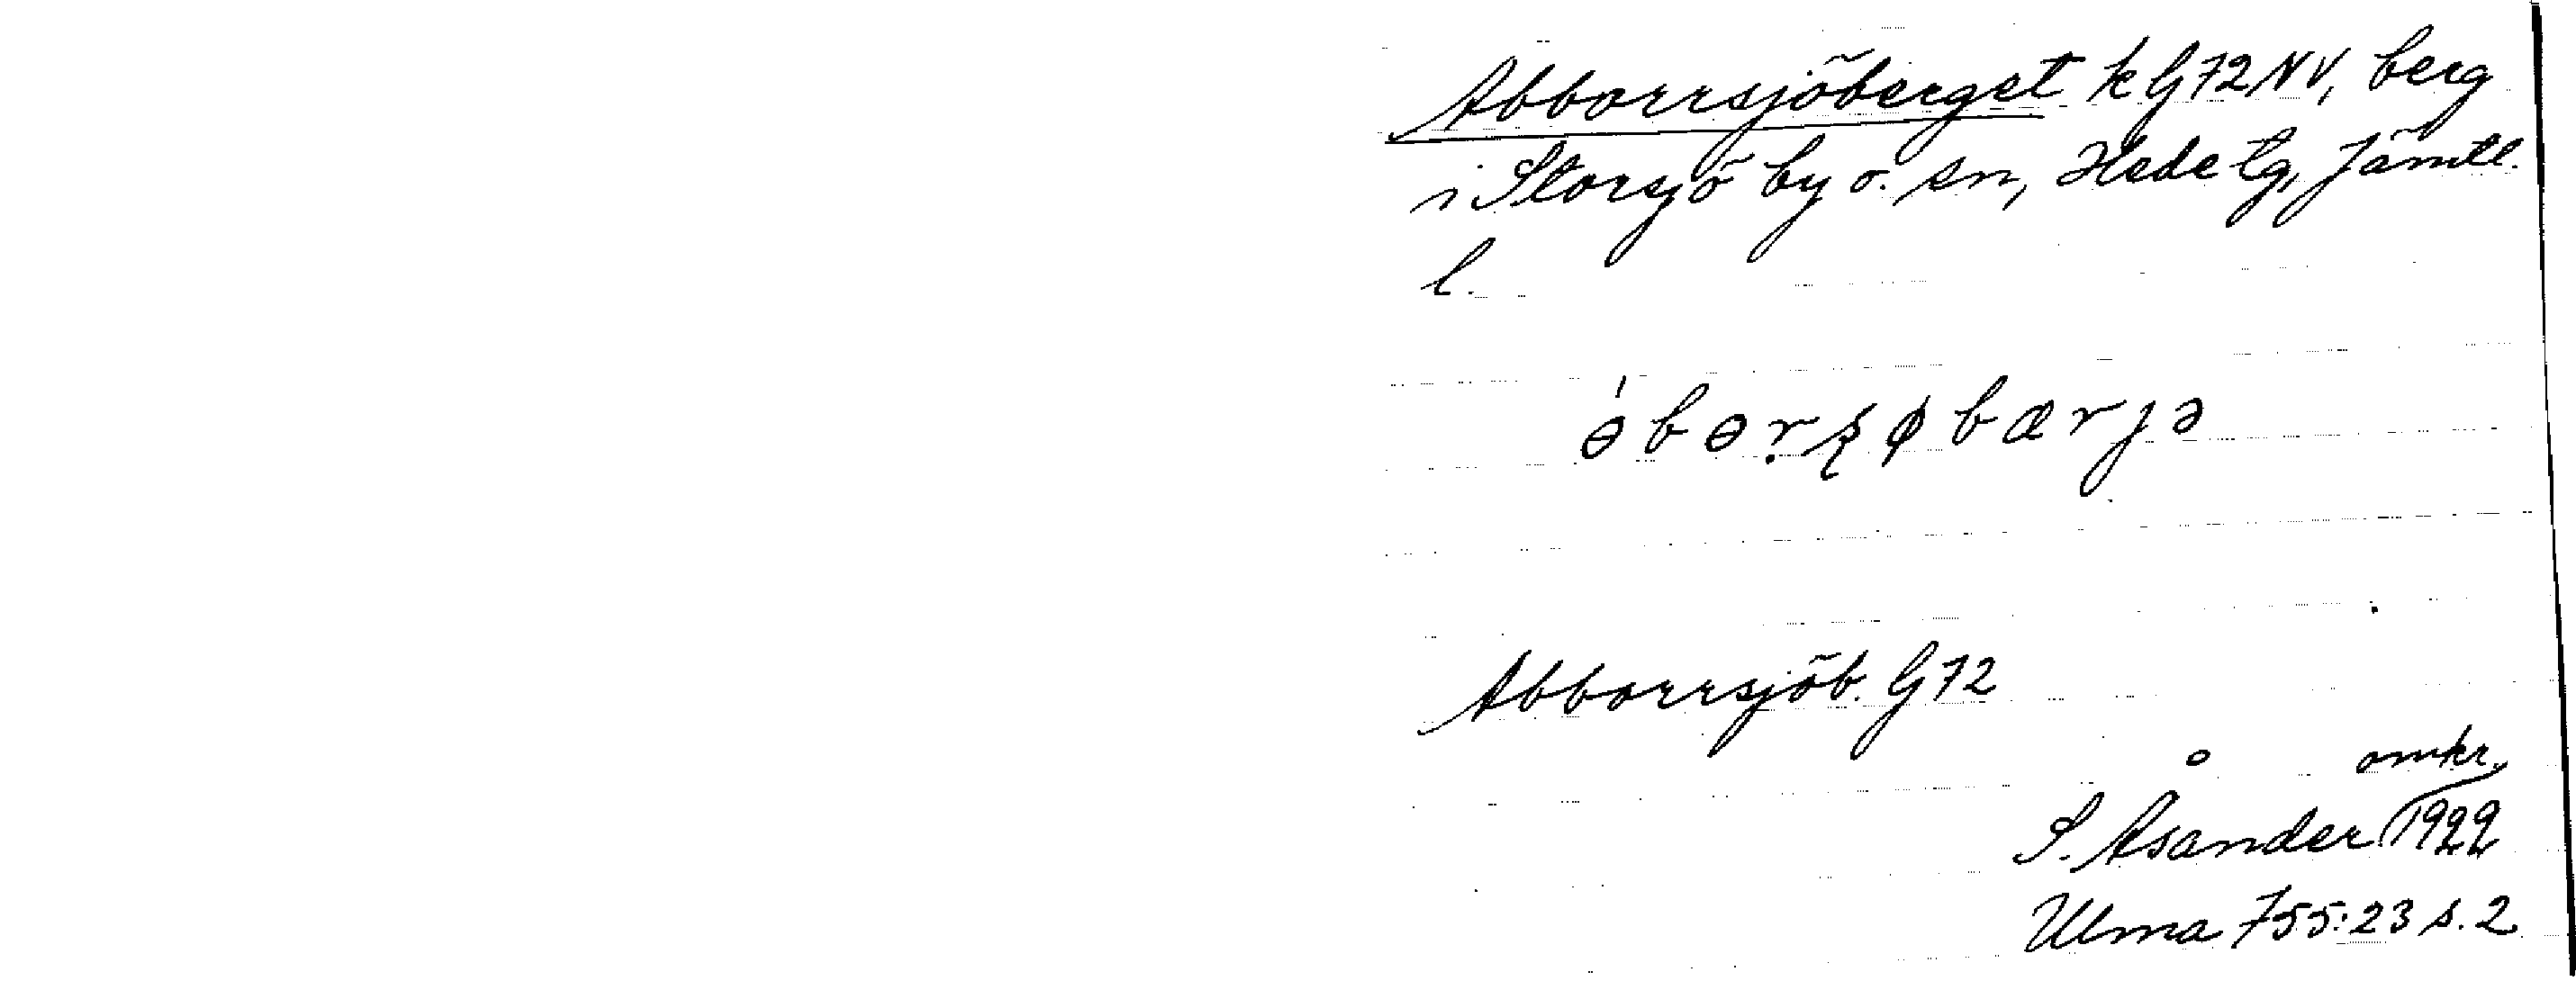 Abborrsjöberget k G72NV, berg
i Storsjö by o. sn, Hede tg, Jämtl.
l.
ɵ́bɵṛʂøbærjə
Abborrsjöb. G72
omkr.
S. Åsander 1922
Ulma 755:23 s.2